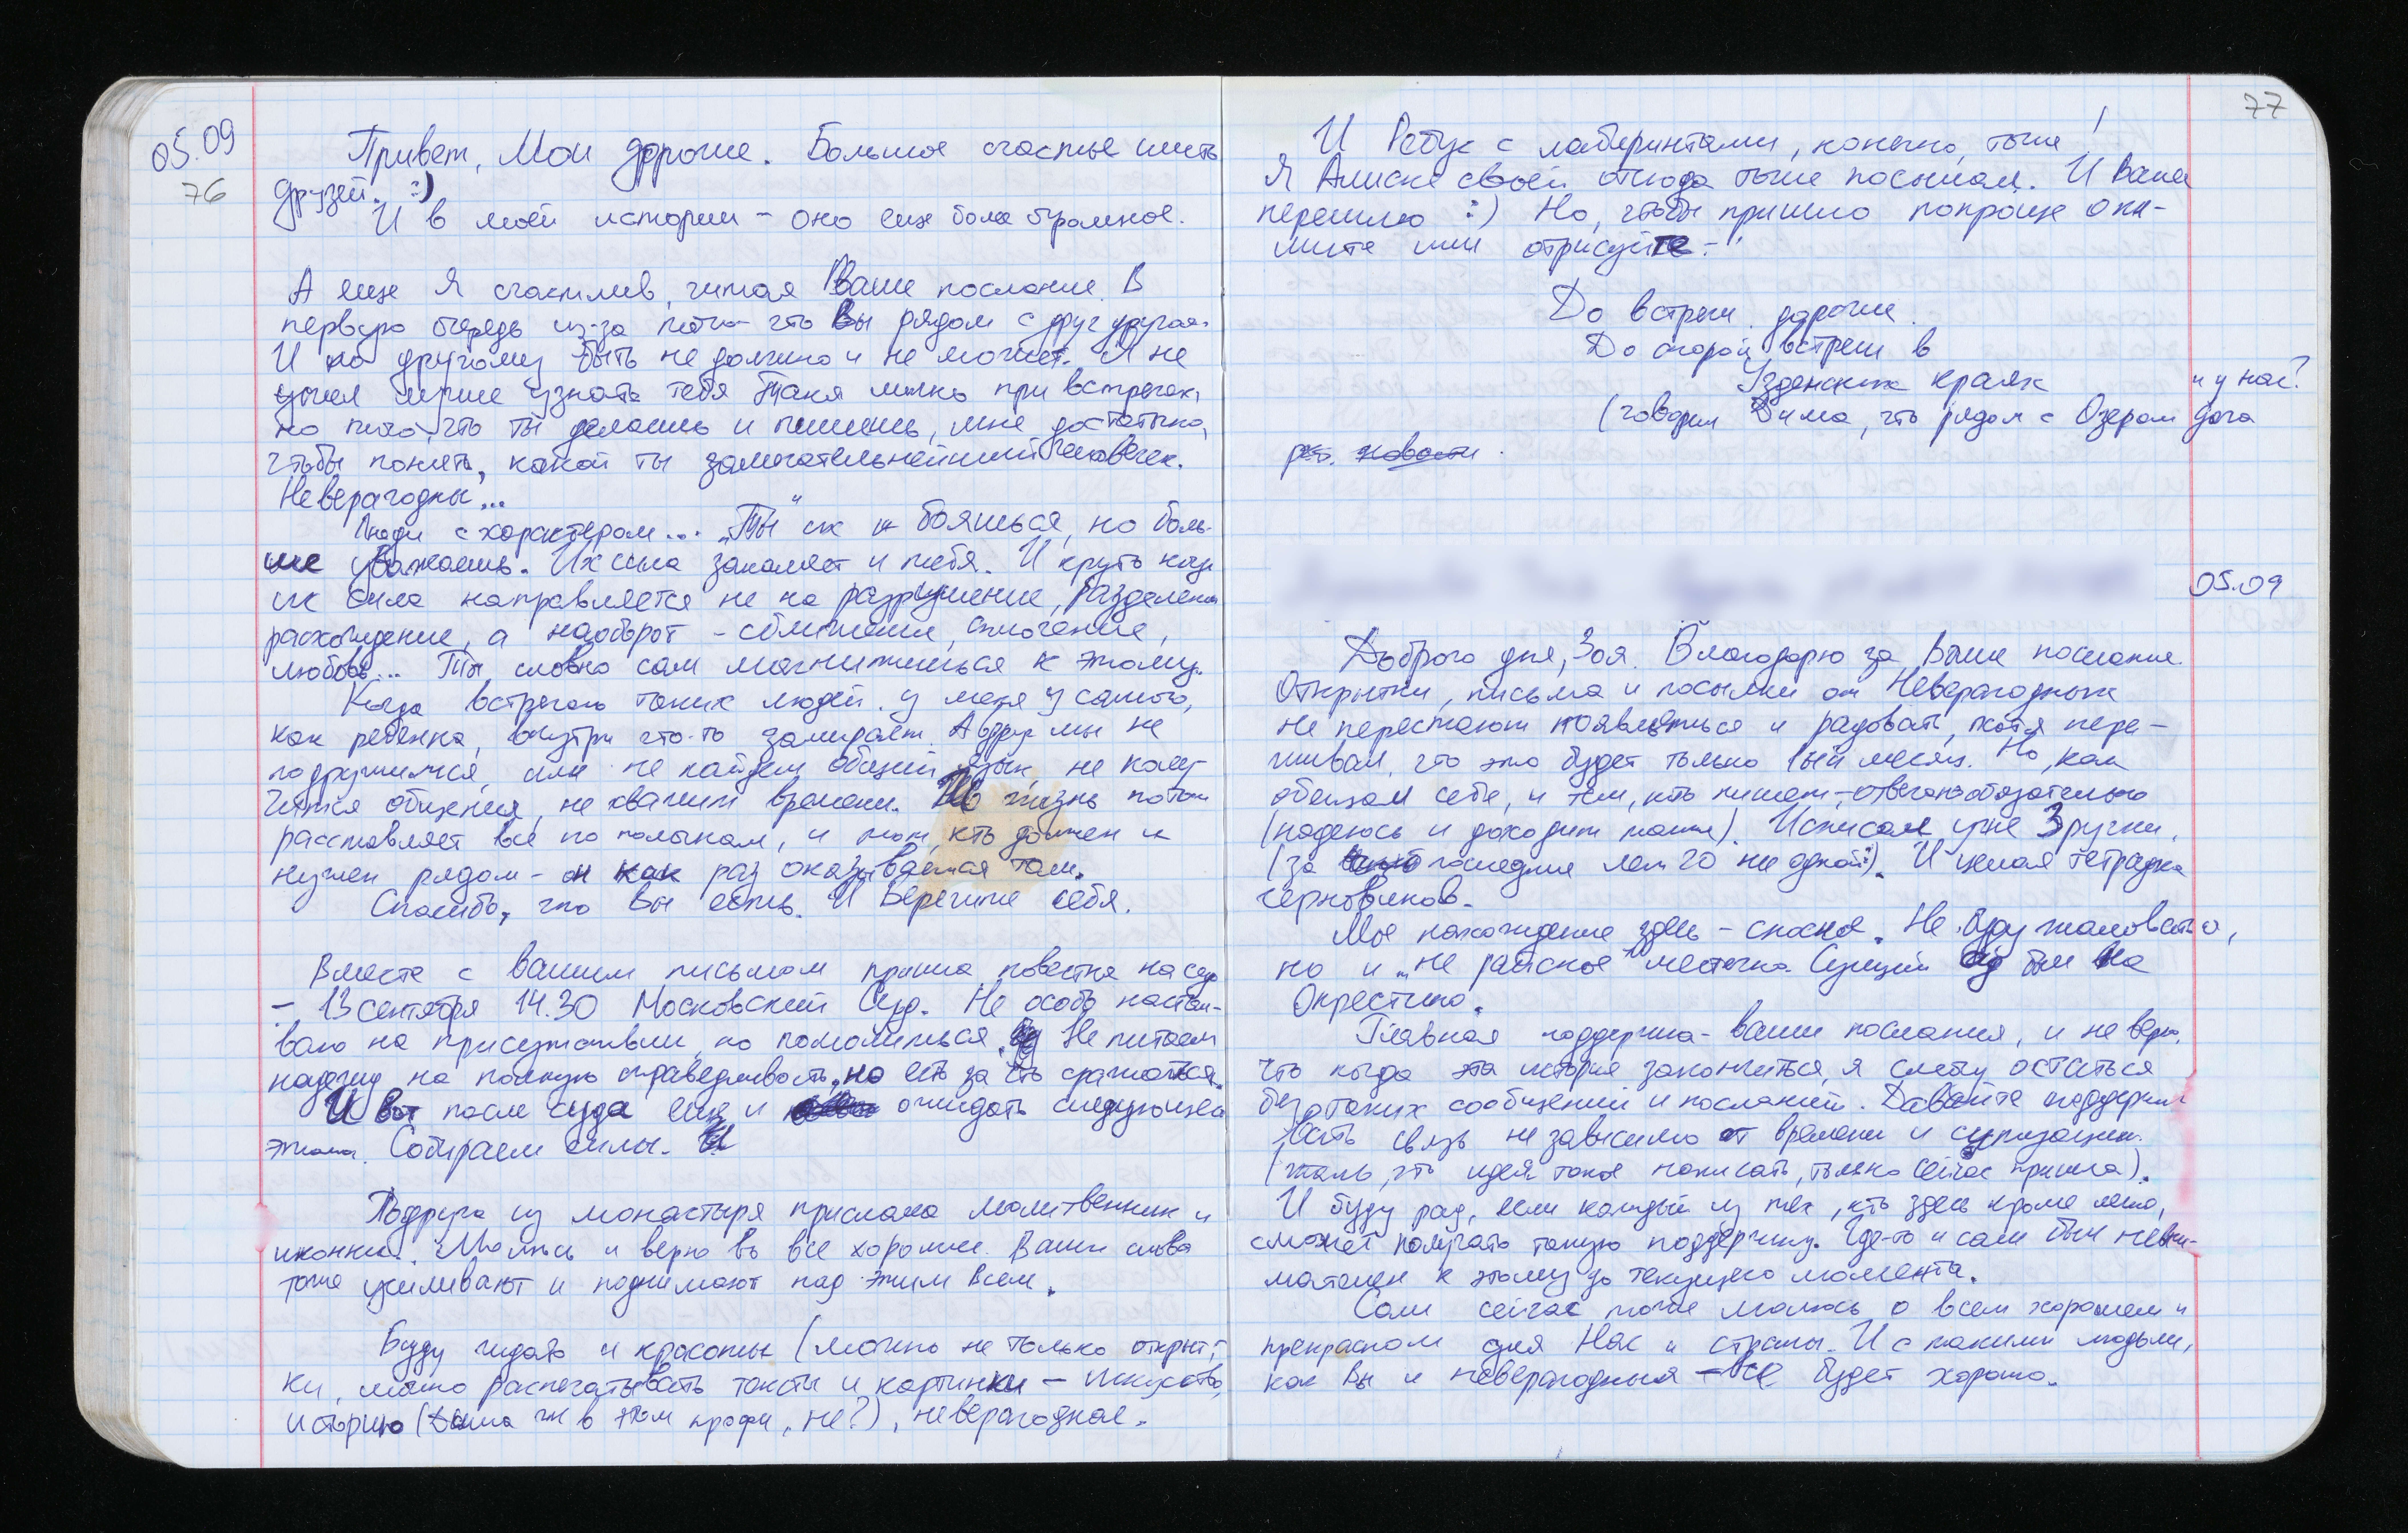 05.09
76
Привет, Мои дорогие. Большое счастье иметь
друзей. :)
И в моей истории – оно еще более огромное.
А еще я счастлив, читая Ваше послание. В
первую очередь из-за того что Вы рядом с друг другом.
И по другому быть не должно и не может. Я не
успел лучше узнать тебя Таня лично при встречах,
но того, что ты делаешь и пишешь, мне достаточно,
чтобы понять, какой ты замечательнейший человечек.
Неверагодны...
Люди с характером... "Ты" их не боишься, но боль-
ше уважаешь. Их сила закаляет и тебя. И круто когда
их сила направляется не на разрушение, разделение
расхождение, а наоборот – сближение, сплочение,
любовь... Ты словно сам магнитишься к этому.
Когда встречаю таких людей, у меня у самого,
как ребенка, внутри что-то замирает. А вдруг мы не
подружимся, или не найдем общий язык, не полу-
чится общения, не хватит времени. Но жизнь потом
расставляет все по полочкам, и тот, кто должен и
нужен рядом – он как раз оказывается там.
Спасибо, что Вы есть. И Берегите себя.
Вместе с вашим письмом пришла повестка на суд
– 13 сентября 14.30 Московский Суд. Не особо настаи-
ваю на присутствии, но помолиться. Не питаем
надежду на полную справедливость, но есть за что сражаться.
И вот после суда еще и ожидать следующего
этапа. Собираем силы.
Подруга из монастыря прислала молитвенник и
иконки. Молюсь и верю во все хорошее. Ваши слова
тоже усиливают и поднимают над этим всем.
Буду ждать и красоты (можно не только открыт-
ки, можно распечатывать тексты и картинки – искусство,
историю (Дима же в этом профи, не?), неверагоднае.
77
И Ребус с лабиринтами, конечно, тоже!
Я Алиске своей отсюда тоже посылал. И Вам
перешлю :) Но, чтобы пришло попроще опи-
шите или отрисуйте.
До встречи, дорогие.
До скорой встречи в
Узденских краях
(говорил Дима, что рядом с Озером дача
и у нас?
05.09
Доброго дня, Зоя. Благодарю за Ваше послание.
Открытки, письма и посылки от Неверагодных
не перестают появляться и радовать, хотя пере-
живал, что это будет только 1ый месяц. Но, как
обещал себе, и тем, кто пишет – отвечаю обязательно
(надеюсь и доходит тоже). Исписал уже 3 ручки,
(за последние лет 20 ни одной :). И целая тетрадка
черновиков.
Мое нахождение здесь – сносное. Не буду жаловаться,
но и "не райское" местечко. Сущий ад был на
Окрестина.
Главная поддержка – ваши послания, и не верю,
что когда эта история закончиться, я смогу остаться
без таких сообщений и посланий. Давайте поддержи-
вать связь не зависимо от времени и ситуации.
(жаль, что идея такое написать, только сейчас пришла).
И буду рад, если каждый из тех, кто здесь кроме меня,
сможет получать такую поддержку. Где-то и сам был невни-
мателен к этому до текущего момента.
Сам сейчас тоже молюсь о всем хорошем и
прекрасном для Нас и страны. И с такими людьми,
как Вы и неверагодныя – все будет хорошо.